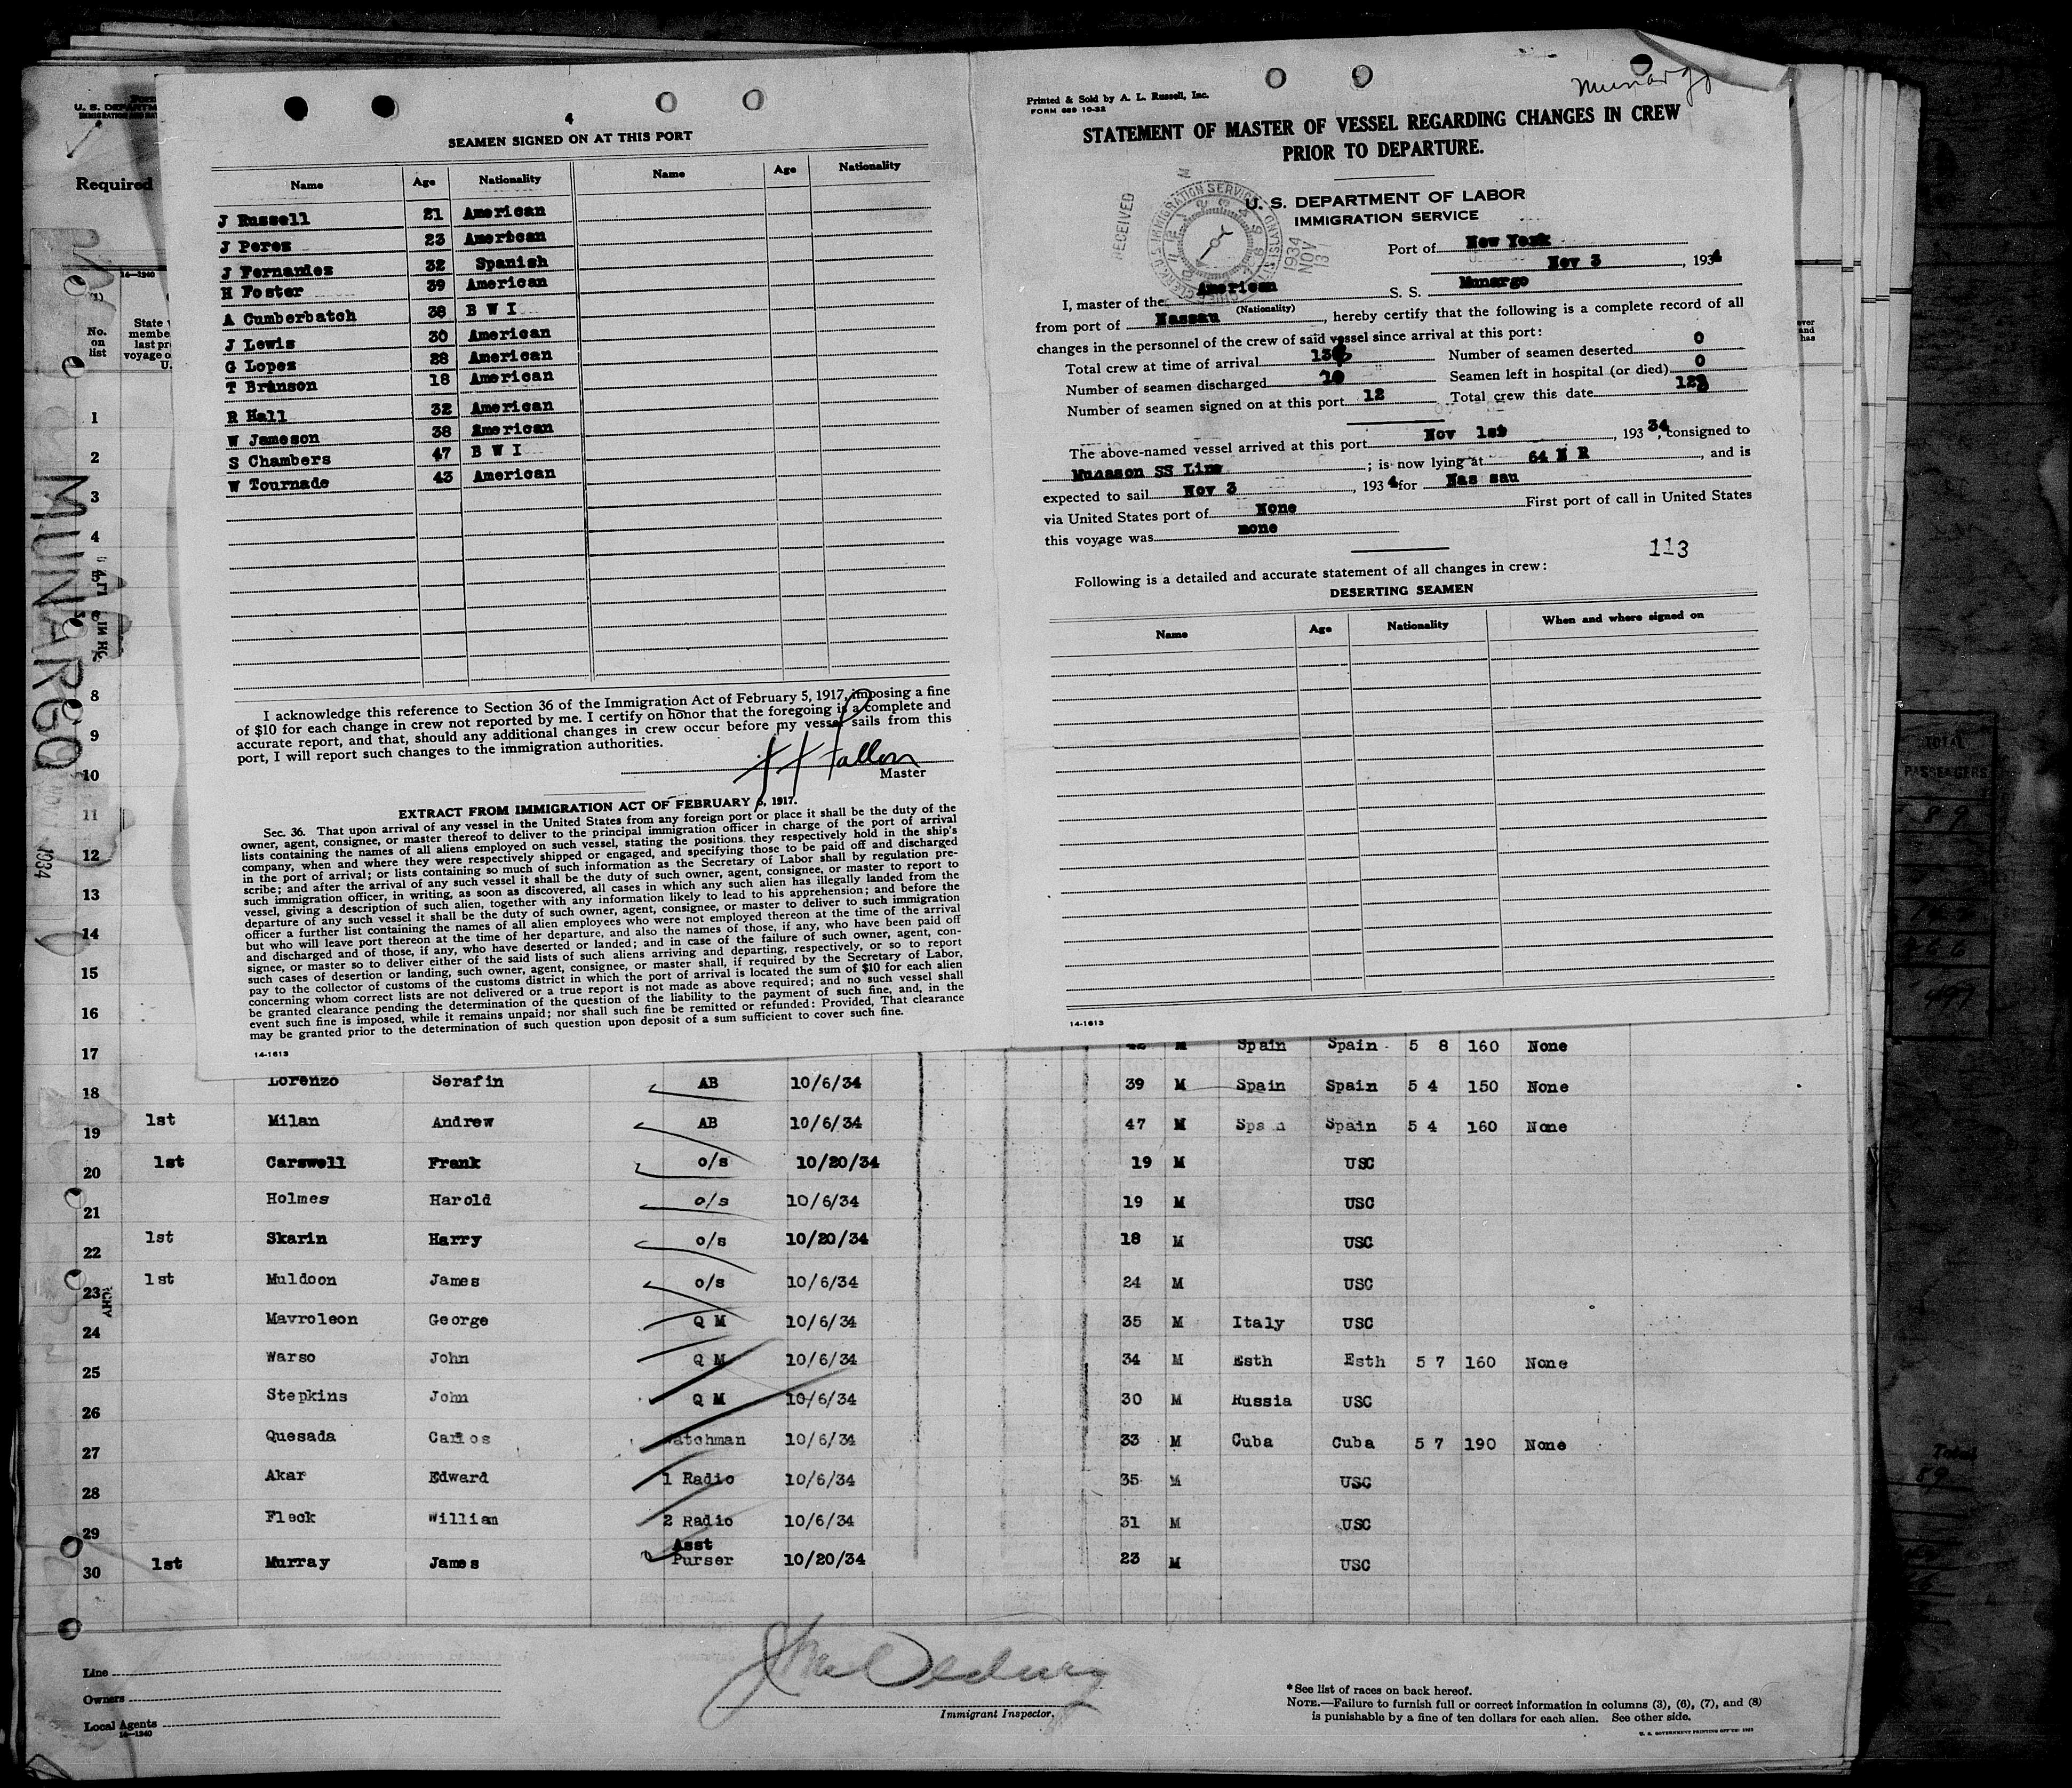 4
SEAMEN SIGNED ON AT THIS PORT
Name Age Nationality Name Age Nationality
J Russell 21 American
J Perez 23 American
J Fernandez 32 Spanish
H Foster 39 American
A Cumberbatch 38 B W I
J Lewis 30 American
G Lopez 28 American
T Branson 18 American
R Hall 32 American
W Jameson 38 American
S Chambers 47 B W I
W Tournade 43 American
I acknowledge this reference to Section 36 of the Immigration Act of February 5, 1917, imposing a fine
of $10 for each change in crew not reported by me. I certify on honor that the foregoing is a complete and
accurate report, and that, should any additional changes in crew occur before my vessel sails from this
port, I will report such changes to the immigration authorities.
Fallon
Master
EXTRACT FROM IMMIGRATION ACT OF FEBRUARY 5, 1917.
Sec. 36. That upon arrival of any vessel in the United States from any foreign port or place it shall be the duty of the
owner, agent, consignee, or master thereof to deliver to the principal immigration officer in charge of the port of arrival
lists containing the names of all aliens employed on such vessel, stating the positions they respectively hold in the ship's
company, when and where they were respectively shipped or engaged, and specifying those to be paid off and discharged
in the port of arrival; or lists containing so much of such information as the Secretary of Labor shall by regulation pre-
scribe; and after the arrival of any such vessel it shall be the duty of such owner, agent, consignee, or master to report to
such immigration officer, in writing, as soon as discovered, all cases in which any such alien has illegally landed from the
vessel, giving a description of such alien, together with any information likely to lead to his apprehension; and before the
departure of any such vessel it shall be the duty of such owner, agent, consignee, or master to deliver to such immigration
officer a further list containing the names of all alien employees who were not employed thereon at the time of the arrival
but who will leave port thereon at the time of her departure, and also the names of those, if any, who have been paid off
and discharged and of those, if any, who have deserted or landed; and in case of the failure of such owner, agent, con-
signee, or master so to deliver either of the said lists of such aliens arriving and departing, respectively, or so to report
such cases of desertion or landing, such owner, agent, consignee, or master shall, if required by the Secretary of Labor,
pay to the collector of customs of the customs district in which the port of arrival is located the sum of $10 for each alien
concerning whom correct lists are not delivered or a true report is not made as above required; and no such vessel shall
be granted clearance pending the determination of the question of the liability to the payment of such fine, and, in the
event such fine is imposed, while it remains unpaid; nor shall such fine be remitted or refunded: Provided, That clearance
may be granted prior to the determination of such question upon deposit of a sum sufficient to cover such fine.
14-1613
Munargo
Printed & Sold by A. L. Russell, Inc.
FORM 689 10-32
STATEMENT OF MASTER OF VESSEL REGARDING CHANGES IN CREW
PRIOR TO DEPARTURE.
RECEIVED
1934 NOV 13
U. S. DEPARTMENT OF LABOR
IMMIGRATION SERVICE
Port of New York
Nov 3, 1934
I, master of the American S. S. Munargo
(Nationality)
from port of Nassau, hereby certify that the following is a complete record of all
changes in the personnel of the crew of said vessel since arrival at this port:
Total crew at time of arrival Number of seamen deserted 0
Number of seamen discharged Seamen left in hospital (or died) 0
Number of seamen signed on at this port 12 Total crew this date
The above-named vessel arrived at this port Nov 1st, 193 34, consigned to
Munason SS Line; is now lying at 64 N R, and is
expected to sail Nov 3, 1934 for Nas sau
via United States port of None First port of call in United States
this voyage was none
113
Following is a detailed and accurate statement of all changes in crew:
DESERTING SEAMEN
Name Age Nationality When and where signed on
14-1613
U. S. DEPARTM
Required
14-1240
(1)
No. on list
State
membe
last pr
voyage o
U.
ever
and
has
MUNARGO
1934
TOTAL
PASSENGERS
89
1
2
3
4
5
6
7
8
9
10
11
12
13
14
15
16
17 Spain Spain 5 8 160 None
18 Lorenzo Serafin AB 10/6/34 39 M Spain Spain 5 4 150 None
19 1st Milan Andrew AB 10/6/34 47 M Spain Spain 5 4 160 None
20 1st Carswell Frank o/s 10/20/34 19 M USC
21 Holmes Harold o/s 10/6/34 19 M USC
22 1st Skarin Harry o/s 10/20/34 18 M USC
23 1st Muldoon James o/s 10/6/34 24 M USC
24 Mavroleon George Q M 10/6/34 35 M Italy USC
25 Warso John Q M 10/6/34 34 M Esth Esth 5 7 160 None
26 Stepkins John Q M 10/6/34 30 M Russia USC
27 Quesada Carlos Watchman 10/6/34 33 M Cuba Cuba 5 7 190 None
28 Akar Edward 1 Radio 10/6/34 35 M USC
29 Fleck William 2 Radio 10/6/34 31 M USC
30 1st Murray James Asst Purser 10/20/34 23 M USC
Total
89
Line
Owners
Local Agents
14-1240
Immigrant Inspector.
*See list of races on back hereof.
NOTE.—Failure to furnish full or correct information in columns (3), (6), (7), and (8)
is punishable by a fine of ten dollars for each alien. See other side.